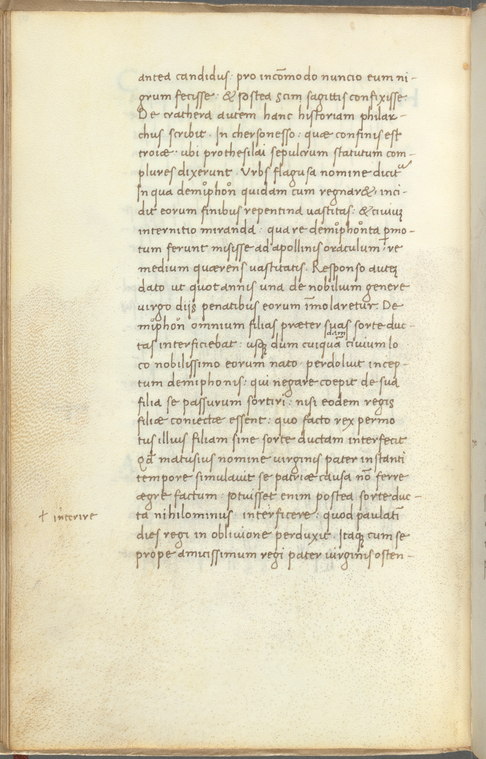 antea candidus: pro incōmodo nuncio eum ni-
grum fecisse: & postea Scim sagittis confixisse.
De crathera autem hanc historiam philar-
chus scribit. In chersonesso: quae confinis est
troiae: ubi prothesilai sepulcrum statutum com-
plures dixerunt. Urbs flagusa nomine dicit
In qua demiphon quidam cum regnar&: inci-
dit eorum finibus repentina vastitas: & civiuꝫ
internitio miranda: qua re demiphonta pmo-
tum ferunt misisse ad apollinis oraculum: re
medium quaerens vastitatis. Responso autꝫ
dato ut quotannis una de nobilium genere
virgo dijs penatibus eorum īmolaretur. De-
miphon omnium filias praeter suas sorte duc-
tas interficiebat: usqꝫ dum cuiqua civium lo
co nobilissimo eorum nato perdoluit incep-
tum demiphonis: qui negare coepit de sua
filia se passurum sortiri: nisi eodem regis
filiae coniectae essent: quo facto rex permo
tus illius filiam sine sorte ductam interfecit
Qđ matusius nomine virginis pater instanti
tempore simulavit se patriae causa nō ferre
aegre factum: potuisset enim postea sorte duc-
ta nihilominus interficere: quod paulatī
dies regi in oblivione perduxit. Itaqꝫ cum se
prope amicissimum regi pater virginis osten-
† interire